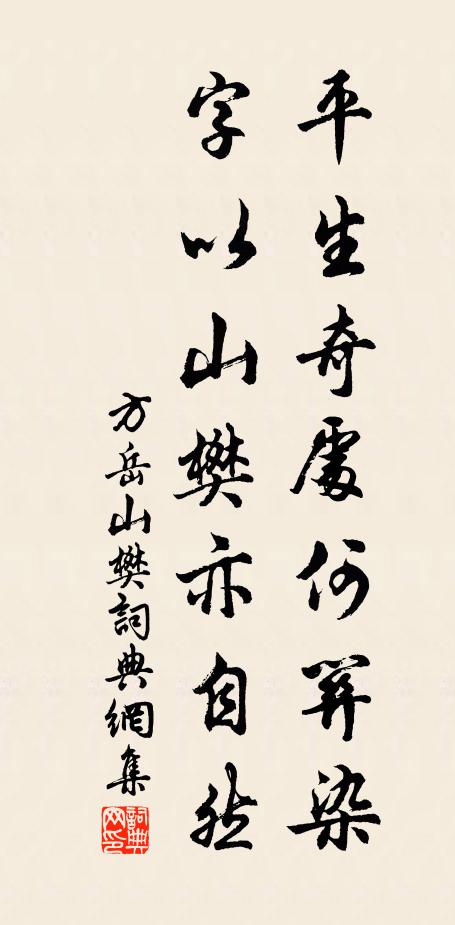 平生奇處何關染
字以山樊亦自然
方岳山樊詞典網集
詞典网印